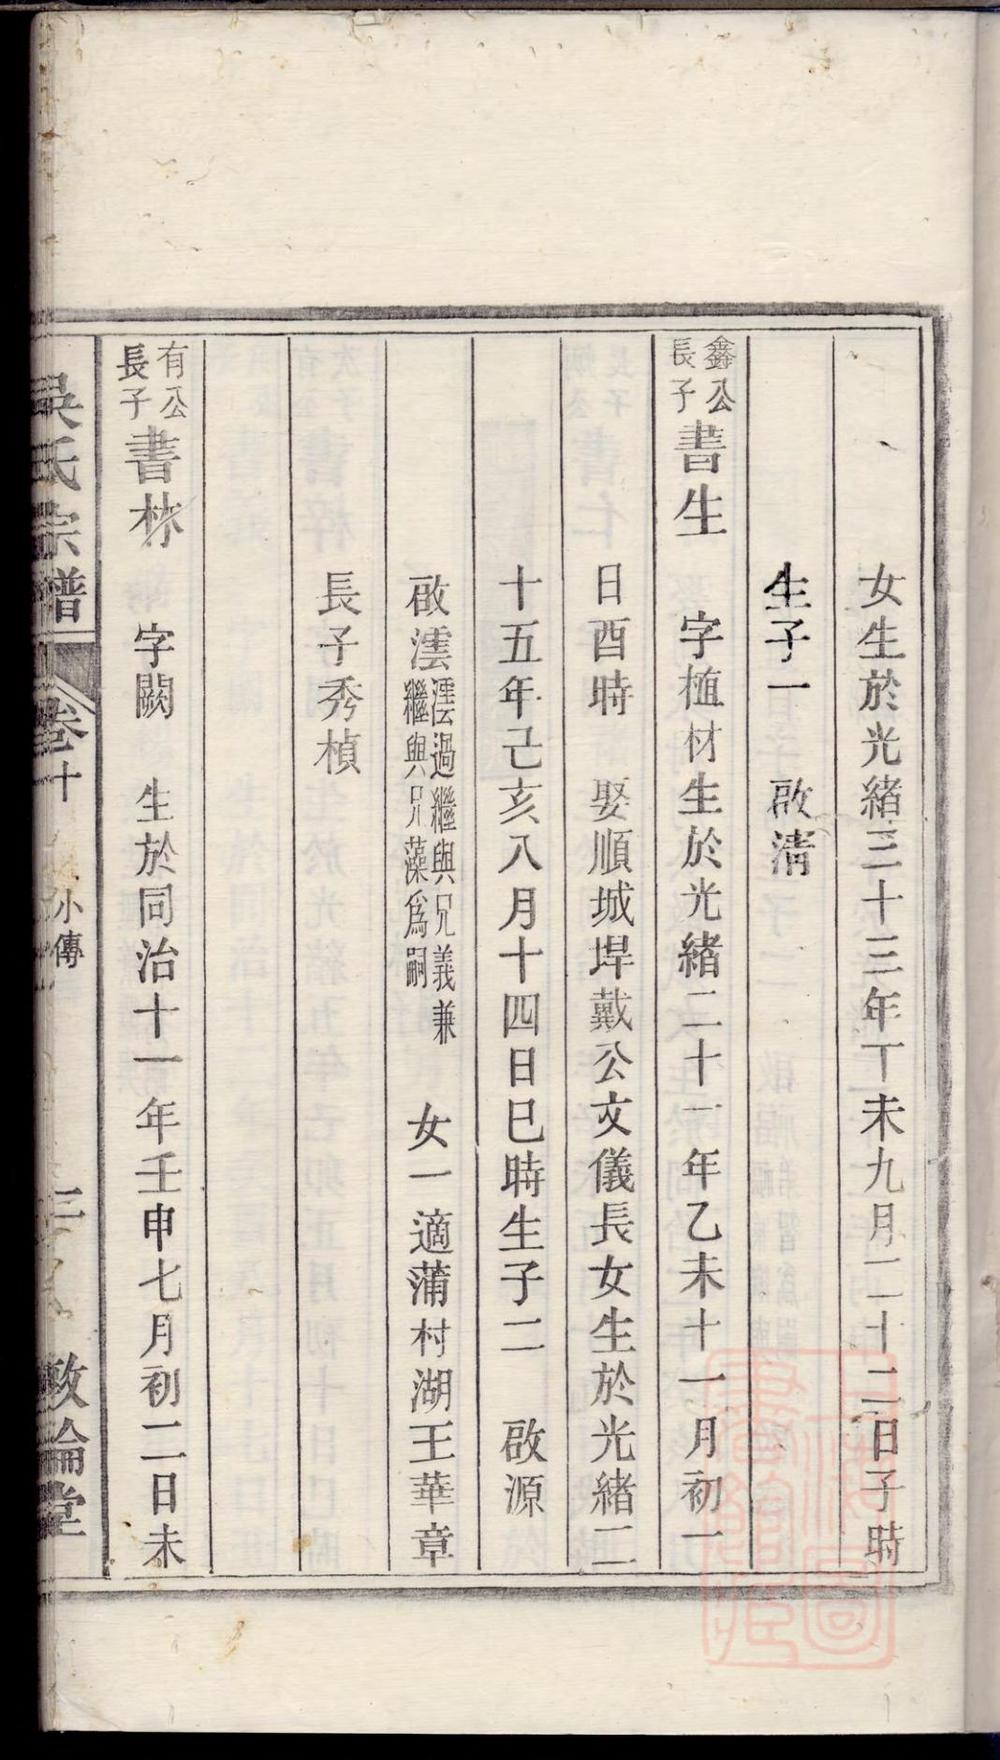 女生於光緒三十三年丁未九月二十二日子時
生子一 啟清
鑫公長子 書生 字植材生於光緒二十一年乙未十一月初一
日酉時 娶順城垾戴公文儀長女生於光緒二
十五年己亥八月十四日巳時生子二 啟源
啟澐 澐過繼與兄義兼繼與兄藻爲嗣 女一適蒲村湖王華章
長子秀楨
有公長子 書林 字闕 生於同治十一年壬申七月初二日未
吳氏宗譜 卷十 小傳 二 敦倫堂